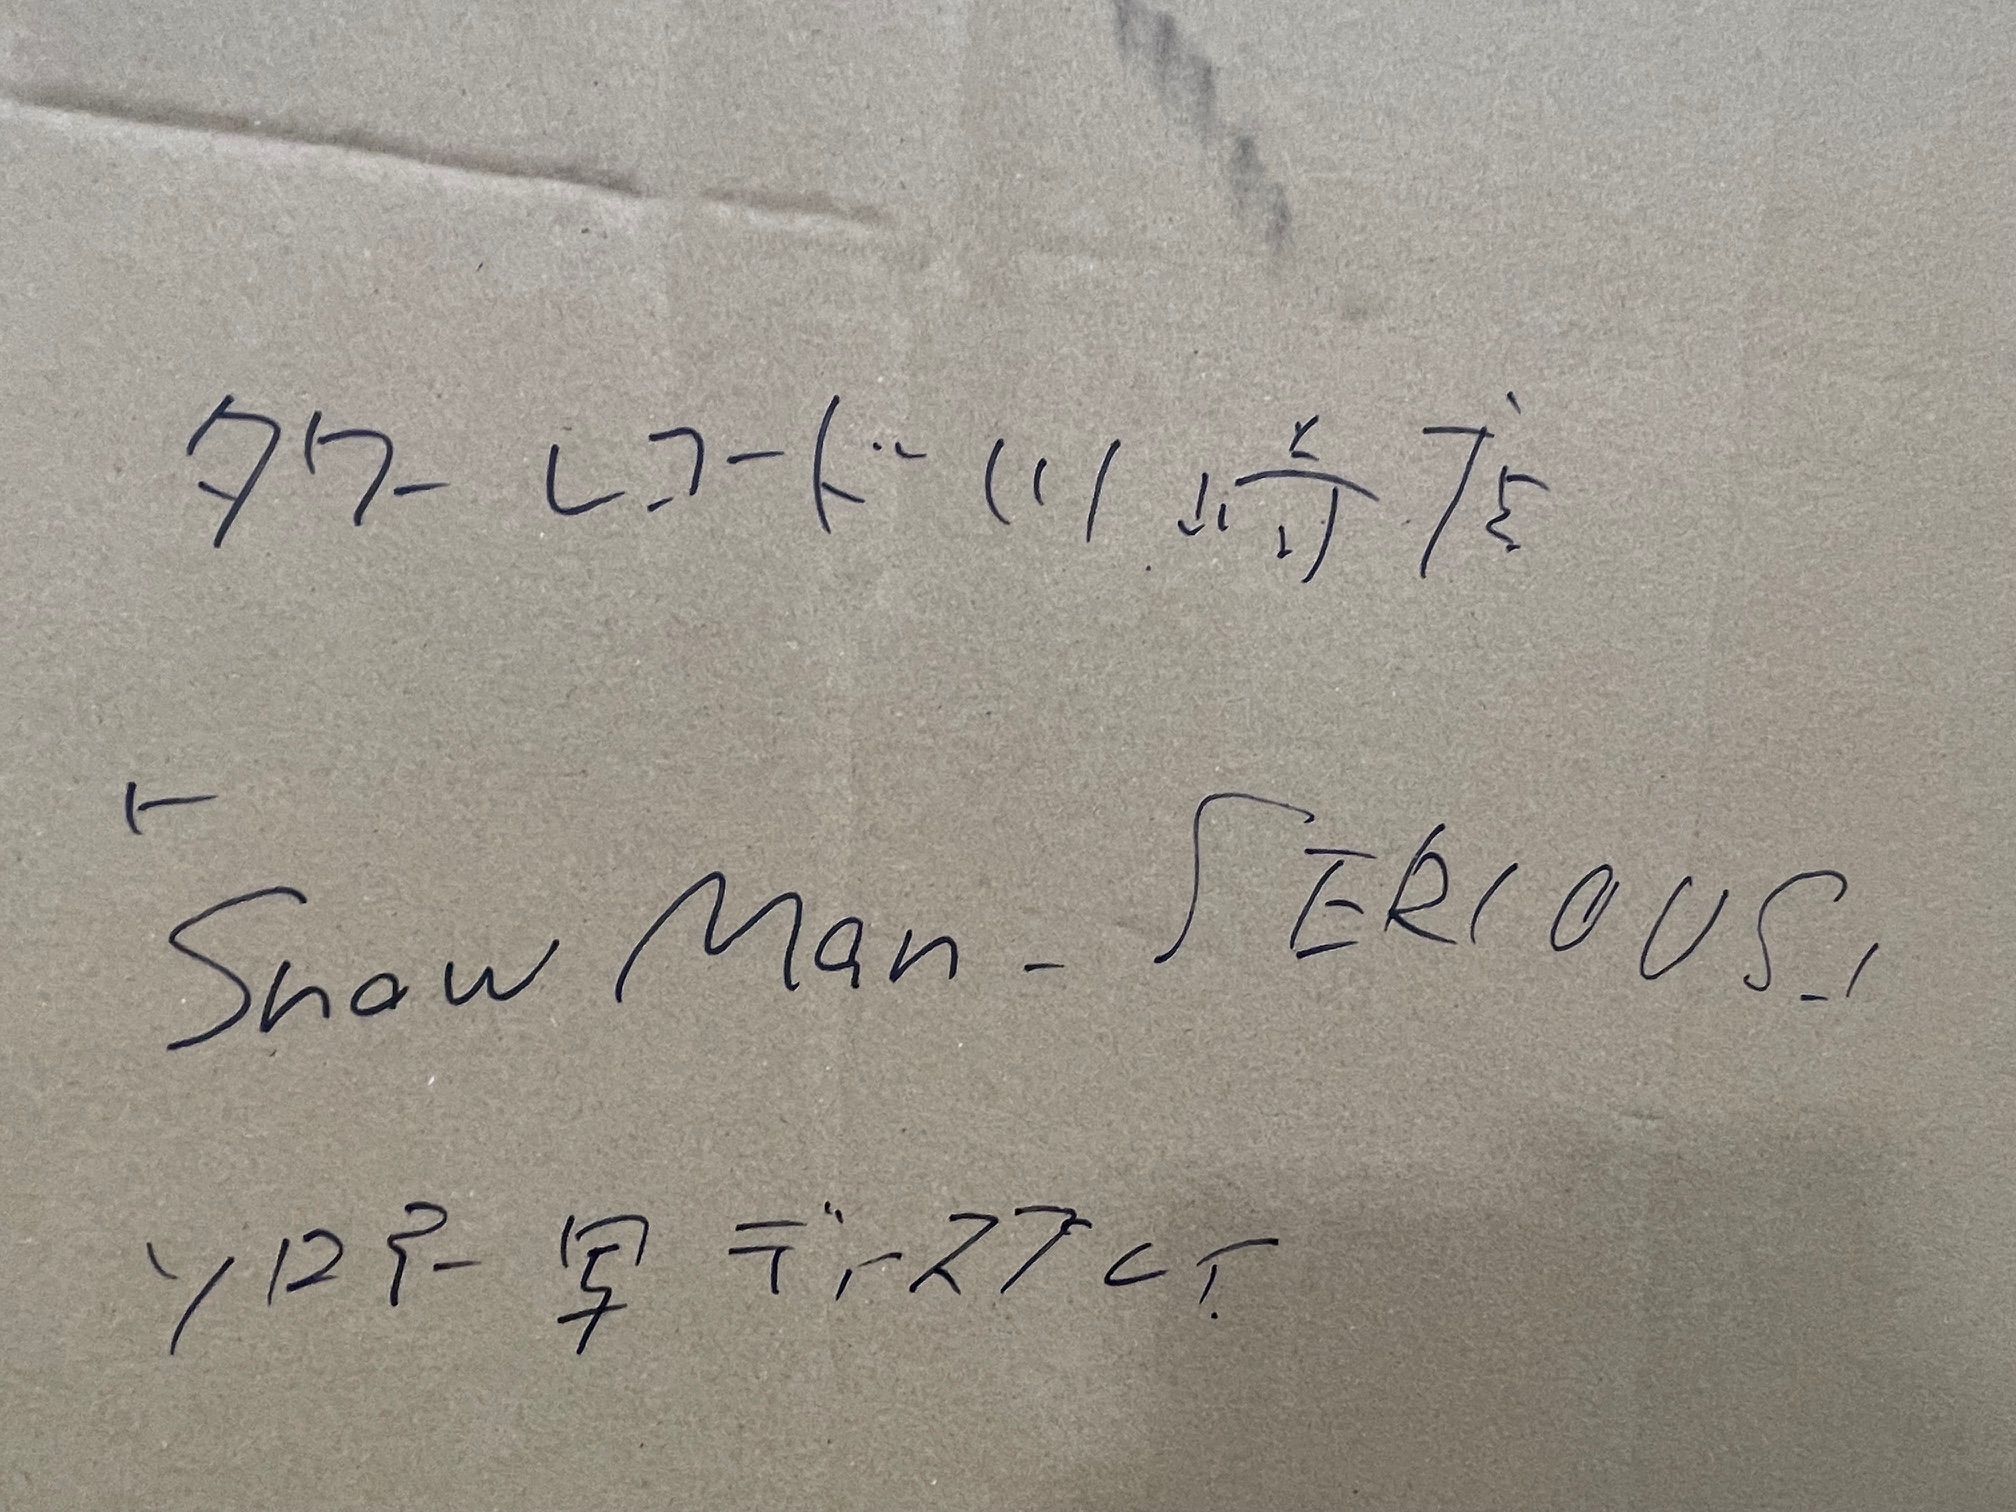 タワーレコード川崎店
「Snow Man - SERIOUS」
ソロアー写ディスプレイ